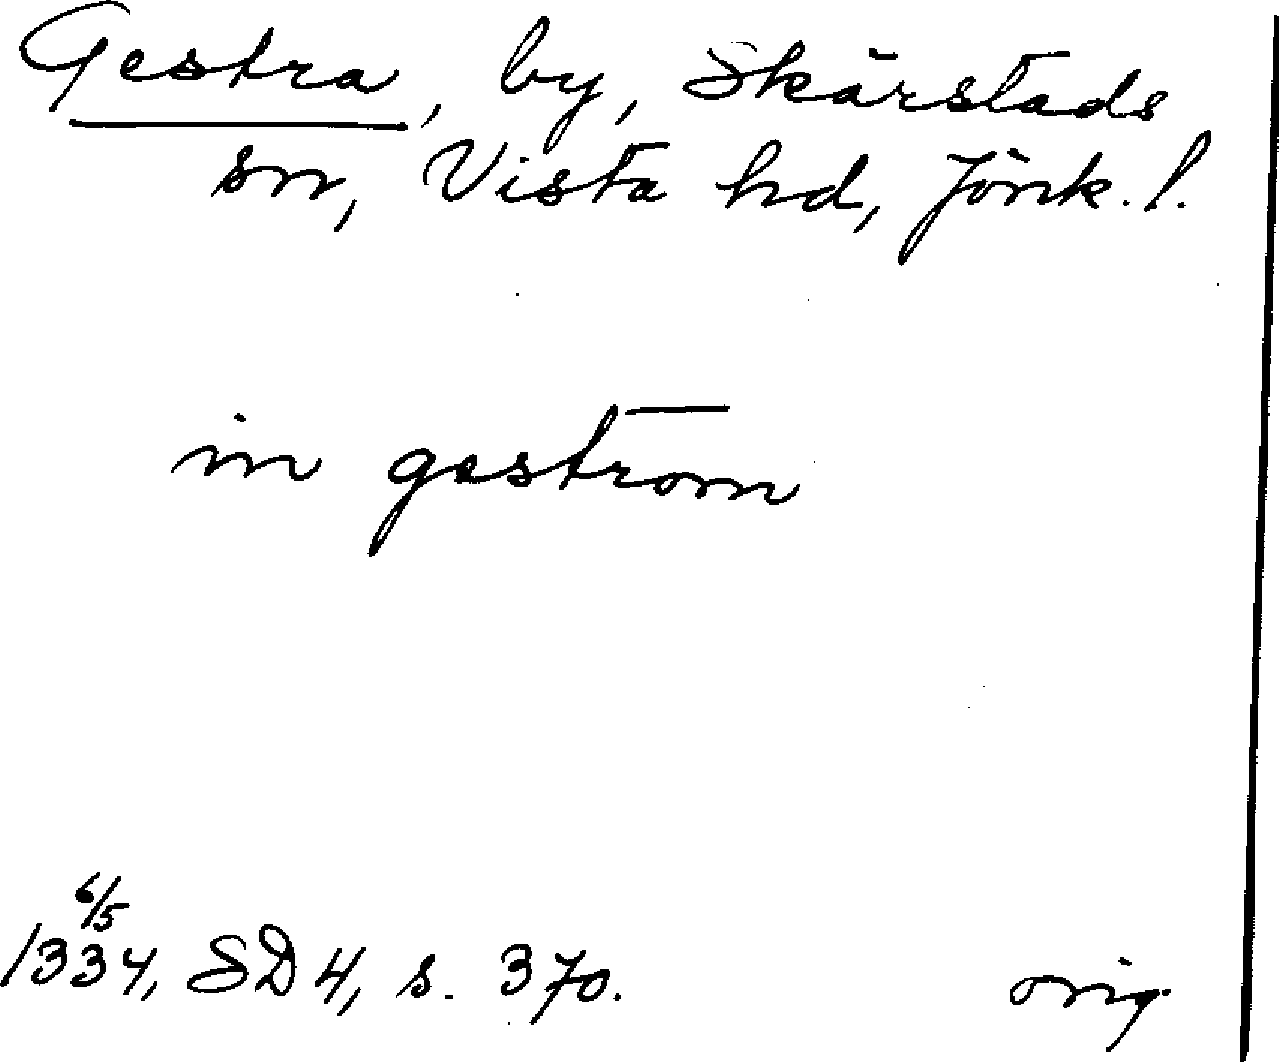 Gestra, by, Skärstads
sn, Vista hd, Jönk. l.
in gestrom
6/5
1334, SD 4, s. 370.
orig.